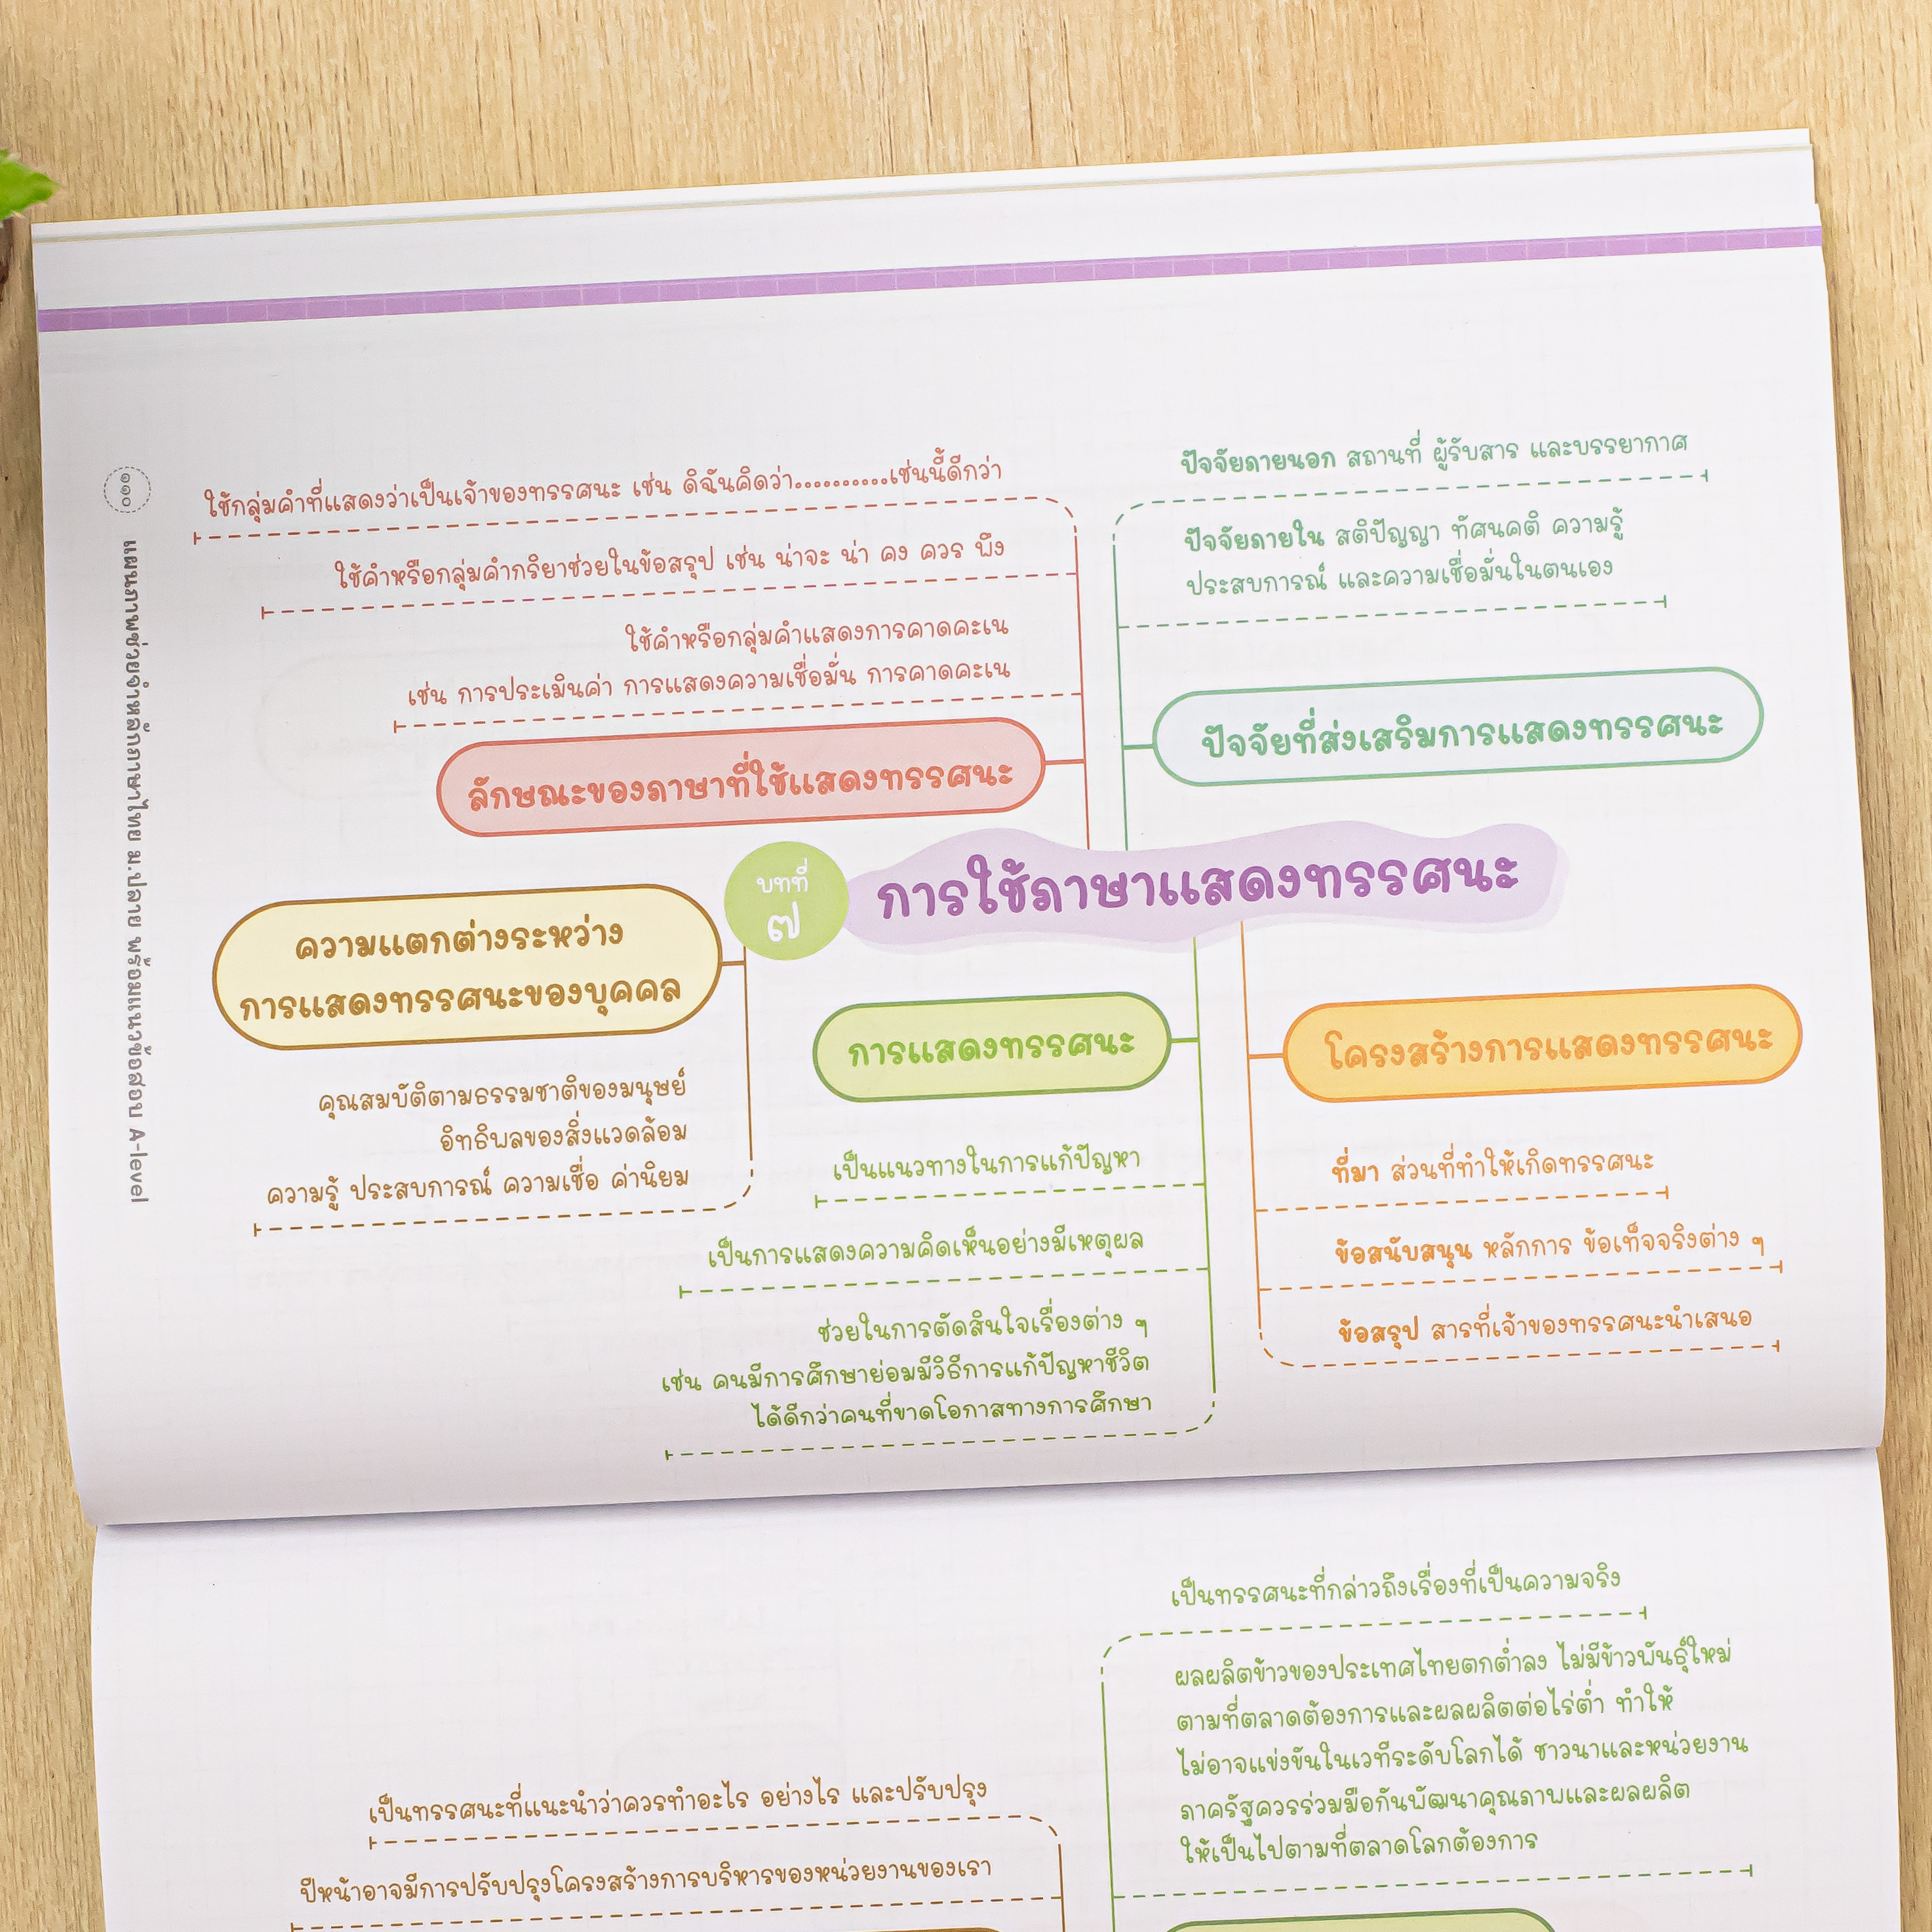 ๑๑๐
แผนภาพช่วยจำหลักภาษาไทย ม.ปลาย พร้อมแนวข้อสอบ A-level
ใช้กลุ่มคำที่แสดงว่าเป็นเจ้าของทรรศนะ เช่น ดิฉันคิดว่า..........เช่นนี้ดีกว่า
ใช้คำหรือกลุ่มคำกริยาช่วยในข้อสรุป เช่น น่าจะ น่า คง ควร พึง
ใช้คำหรือกลุ่มคำแสดงการคาดคะเน
เช่น การประเมินค่า การแสดงความเชื่อมั่น การคาดคะเน
ลักษณะของภาษาที่ใช้แสดงทรรศนะ
ปัจจัยภายนอก สถานที่ ผู้รับสาร และบรรยากาศ
ปัจจัยภายใน สติปัญญา ทัศนคติ ความรู้
ประสบการณ์ และความเชื่อมั่นในตนเอง
ปัจจัยที่ส่งเสริมการแสดงทรรศนะ
บทที่
๗
การใช้ภาษาแสดงทรรศนะ
ความแตกต่างระหว่าง
การแสดงทรรศนะของบุคคล
คุณสมบัติตามธรรมชาติของมนุษย์
อิทธิพลของสิ่งแวดล้อม
ความรู้ ประสบการณ์ ความเชื่อ ค่านิยม
การแสดงทรรศนะ
เป็นแนวทางในการแก้ปัญหา
เป็นการแสดงความคิดเห็นอย่างมีเหตุผล
ช่วยในการตัดสินใจเรื่องต่าง ๆ
เช่น คนมีการศึกษาย่อมมีวิธีการแก้ปัญหาชีวิต
ได้ดีกว่าคนที่ขาดโอกาสทางการศึกษา
โครงสร้างการแสดงทรรศนะ
ที่มา ส่วนที่ทำให้เกิดทรรศนะ
ข้อสนับสนุน หลักการ ข้อเท็จจริงต่าง ๆ
ข้อสรุป สารที่เจ้าของทรรศนะนำเสนอ
เป็นทรรศนะที่กล่าวถึงเรื่องที่เป็นความจริง
ผลผลิตข้าวของประเทศไทยตกต่ำลง ไม่มีข้าวพันธุ์ใหม่
ตามที่ตลาดต้องการและผลผลิตต่อไร่ต่ำ ทำให้
ไม่อาจแข่งขันในเวทีระดับโลกได้ ชาวนาและหน่วยงาน
ภาครัฐควรร่วมมือกันพัฒนาคุณภาพและผลผลิต
ให้เป็นไปตามที่ตลาดโลกต้องการ
เป็นทรรศนะที่แนะนำว่าควรทำอะไร อย่างไร และปรับปรุง
ปีหน้าอาจมีการปรับปรุงโครงสร้างการบริหารของหน่วยงานของเรา